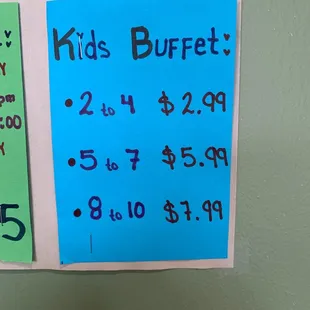 Kids Buffet:
• 2 to 4 $2.99
• 5 to 7 $5.99
• 8 to 10 $7.99
Y
pm
:00
Y
5